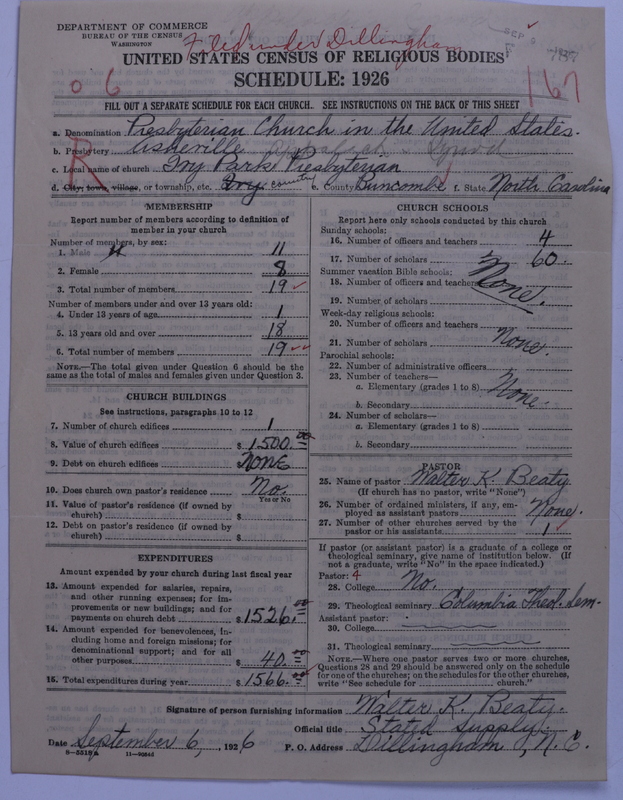 DEPARTMENT OF COMMERCE
BUREAU OF THE CENSUS
WASHINGTON
Filed under Dillingham
SEP 9
UNITED STATES CENSUS OF RELIGIOUS BODIES
SCHEDULE: 1926
0 6
167
FILL OUT A SEPARATE SCHEDULE FOR EACH CHURCH. SEE INSTRUCTIONS ON THE BACK OF THIS SHEET
R
a. Denomination Presbyterian Church in the United States.
b. Presbytery Asheville Synod
c. Local name of church Ivy Park Presbyterian
d. City, town, village, or township, etc. Ivy country e. County Buncombe f. State North Carolina
MEMBERSHIP
Report number of members according to definition of member in your church
Number of members, by sex:
1. Male 11
2. Female 8
3. Total number of members 19
Number of members under and over 13 years old:
4. Under 13 years of age 1
5. 13 years old and over 18
6. Total number of members 19
NOTE.—The total given under Question 6 should be the
same as the total of males and females given under Question 3.
CHURCH BUILDINGS
See instructions, paragraphs 10 to 12
7. Number of church edifices 1
8. Value of church edifices $ 1500.00
9. Debt on church edifices NONE
10. Does church own pastor's residence No.
Yes or No
11. Value of pastor's residence (if owned by
church) $
12. Debt on pastor's residence (if owned by
church) $
EXPENDITURES
Amount expended by your church during last fiscal year
13. Amount expended for salaries, repairs,
and other running expenses; for im-
provements or new buildings; and for
payments on church debt $ 1526.00
14. Amount expended for benevolences, in-
cluding home and foreign missions; for
denominational support; and for all
other purposes $ 40.00
15. Total expenditures during year $ 1566.00
CHURCH SCHOOLS
Report here only schools conducted by this church
Sunday schools:
16. Number of officers and teachers 4
17. Number of scholars 60.
Summer vacation Bible schools:
18. Number of officers and teachers None.
19. Number of scholars
Week-day religious schools:
20. Number of officers and teachers
21. Number of scholars None.
Parochial schools:
22. Number of administrative officers
23. Number of teachers—
a. Elementary (grades 1 to 8) None.
b. Secondary
24. Number of scholars—
a. Elementary (grades 1 to 8)
b. Secondary
PASTOR
25. Name of pastor Walter K. Beaty.
(If church has no pastor, write "None")
26. Number of ordained ministers, if any, em-
ployed as assistant pastors None.
27. Number of other churches served by the
pastor or his assistants 1
If pastor (or assistant pastor) is a graduate of a college or
theological seminary, give name of institution below. (If
not a graduate, write "No" in the space indicated.)
Pastor: 4
28. College No.
29. Theological seminary Columbia Theol. Sem.
Assistant pastor:
30. College
31. Theological seminary
NOTE.—Where one pastor serves two or more churches,
Questions 28 and 29 should be answered only on the schedule
for one of the churches; on the schedules for the other churches,
write "See schedule for church."
Signature of person furnishing information Walter K. Beaty.
Official title Stated Supply.
Date September 6, 1926 P. O. Address Dillingham, N. C.
8—5318a 11—9566